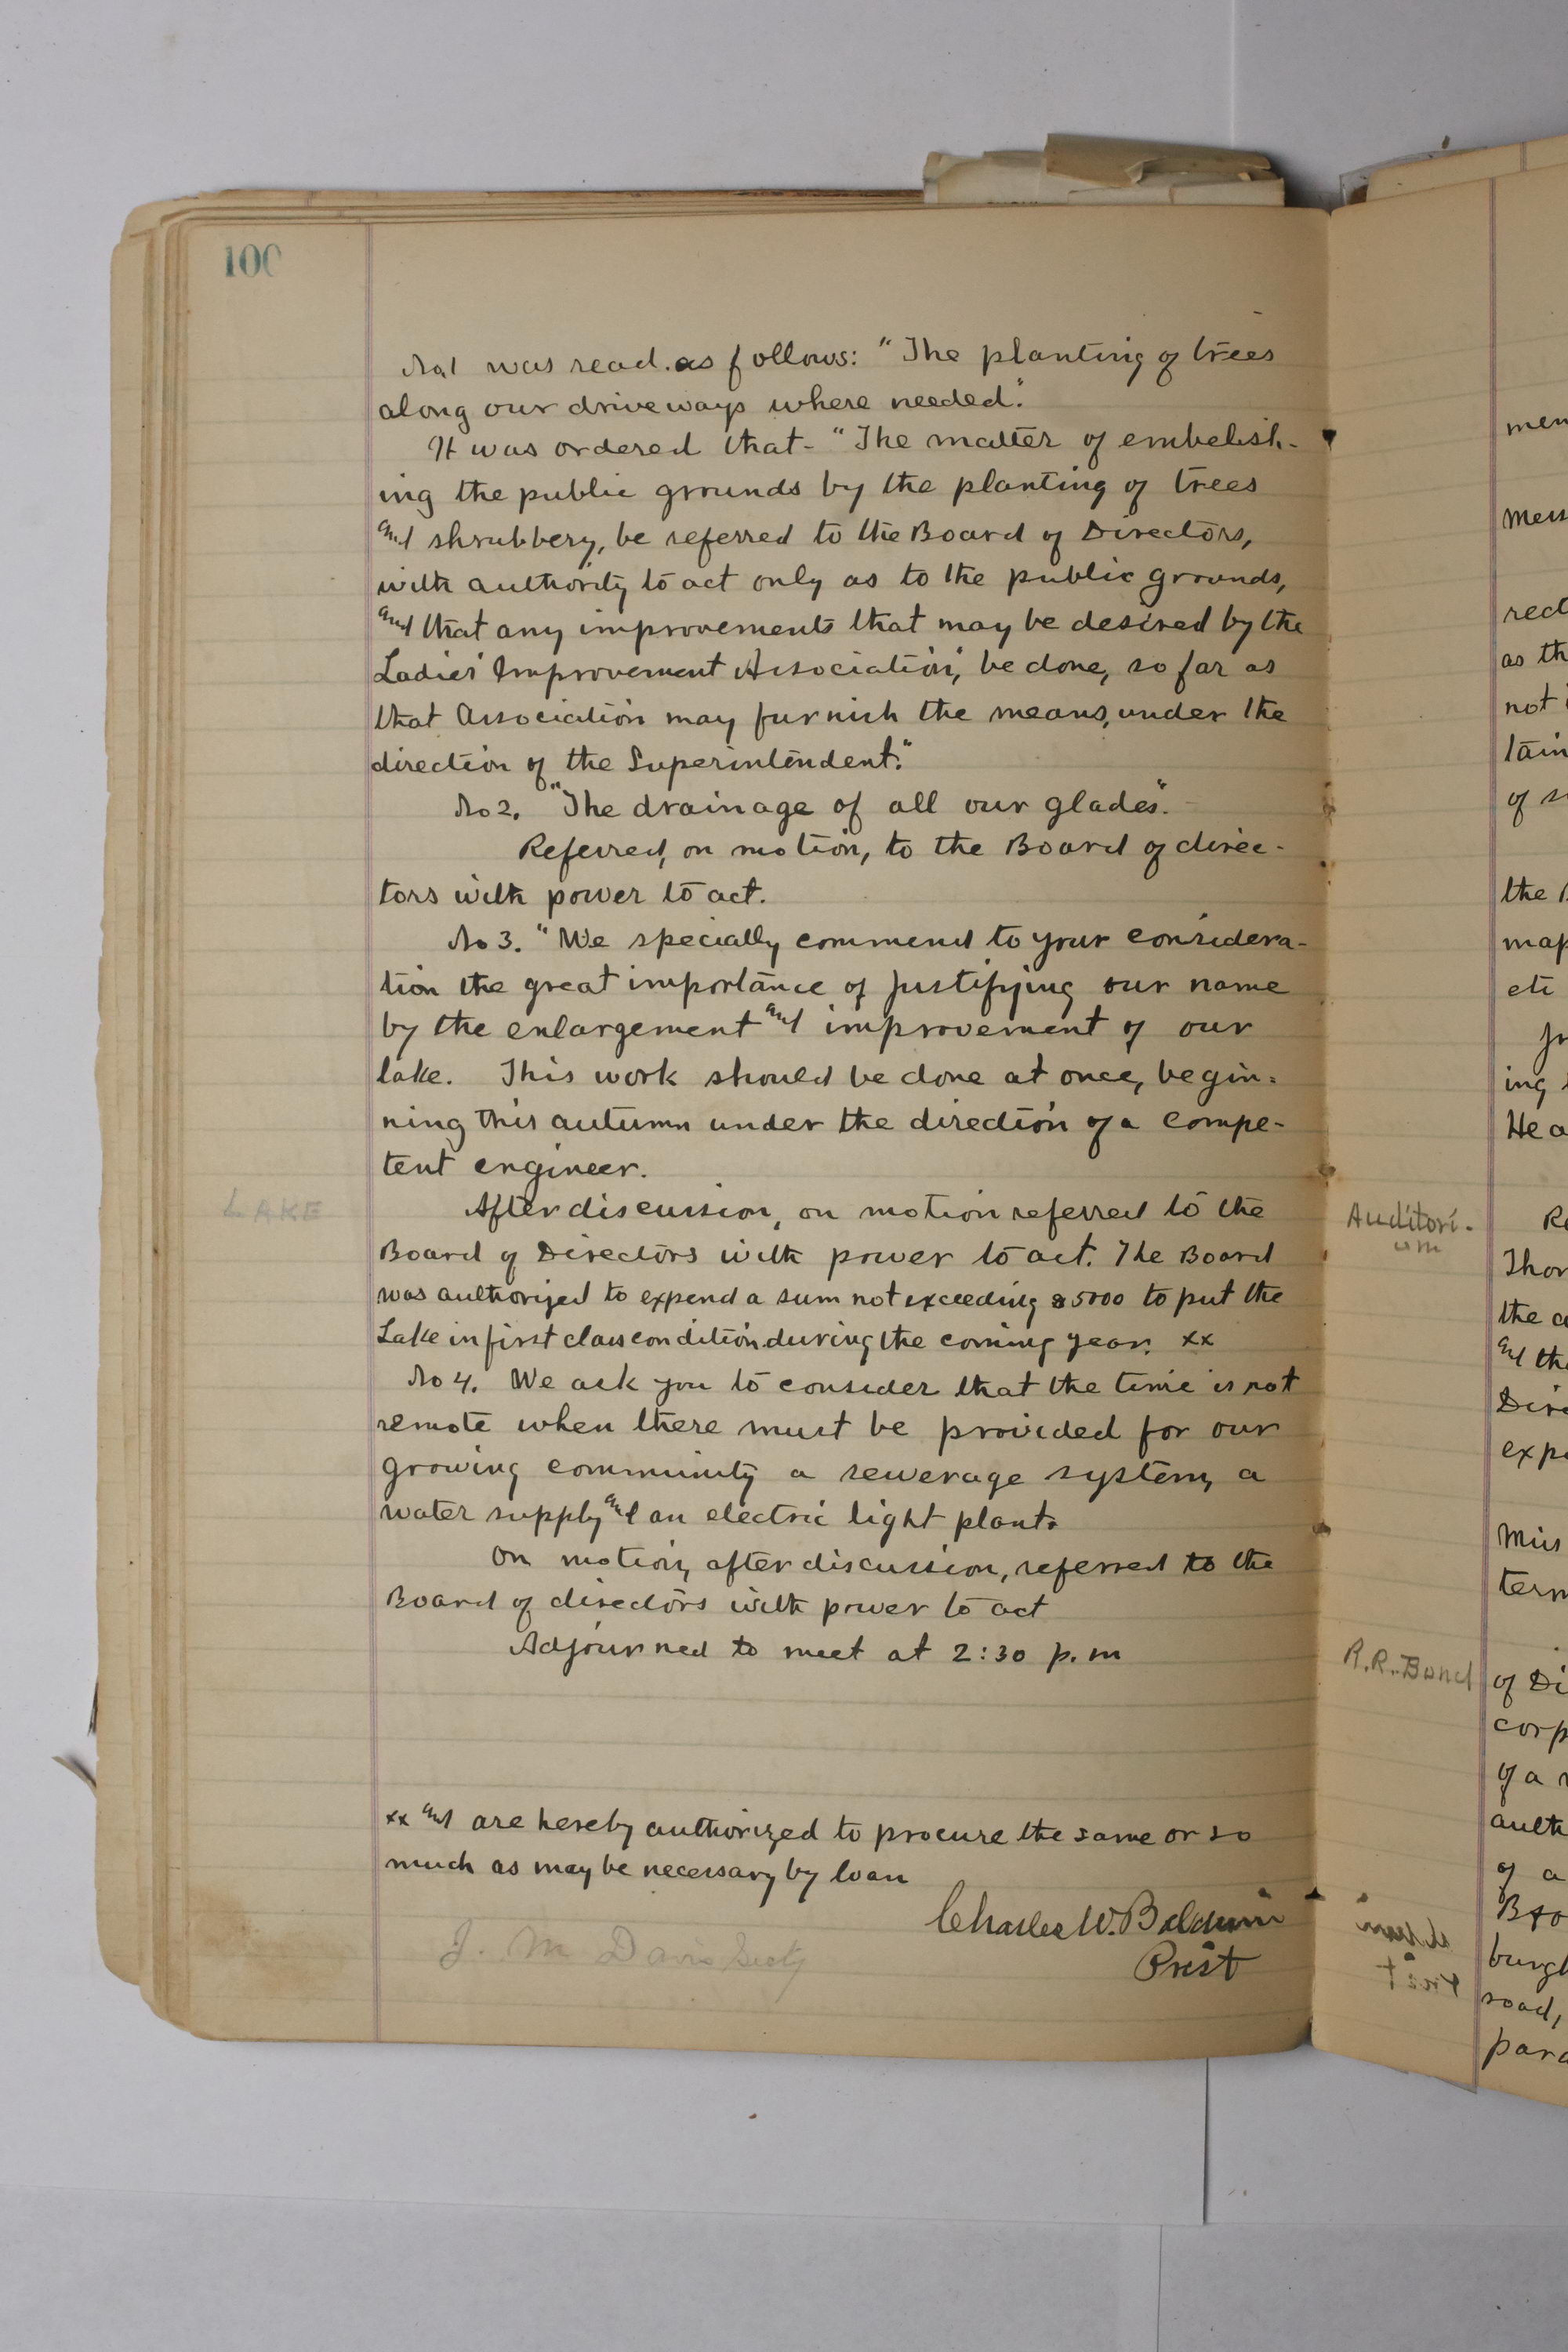 100
No 1 was read as follows: "The planting of trees
along our driveways where needed."
It was ordered that - "The matter of embelish-
ing the public grounds by the planting of trees
and shrubbery, be referred to the Board of Directors,
with authority to act only as to the public grounds,
and that any improvements that may be desired by the
Ladies' Improvement Association, be done, so far as
that Association may furnish the means, under the
direction of the Superintendent."
No 2. "The drainage of all our glades".
Referred, on motion, to the Board of direc-
tors with power to act.
No 3. "We specially commend to your considera-
tion the great importance of justifying our name
by the enlargement and improvement of our
lake. This work should be done at once, begin-
ning this autumn under the direction of a compe-
tent engineer.
LAKE
After discussion, on motion referred to the
Board of Directors with power to act. The Board
was authorized to expend a sum not exceeding $5000 to put the
Lake in first class condition during the coming year. xx
No 4. We ask you to consider that the time is not
remote when there must be provided for our
growing community a sewerage system, a
water supply and an electric light plant.
On motion, after discussion, referred to the
Board of directors with power to act
Adjourned to meet at 2:30 p.m
xx and are hereby authorized to procure the same or so
much as may be necessary by loan
Charles W. Baldwin
Prest
J. M Davis Secty
men
mem
rect
as th
not
tain
of s
the
map
etc
ing
He a
Auditori-
um
Re
Thor
the a
and the
Dire
expe
Miss
term
R.R. Bond
of Di
corp
of a
auth
of a
Bro
burgh
road,
para